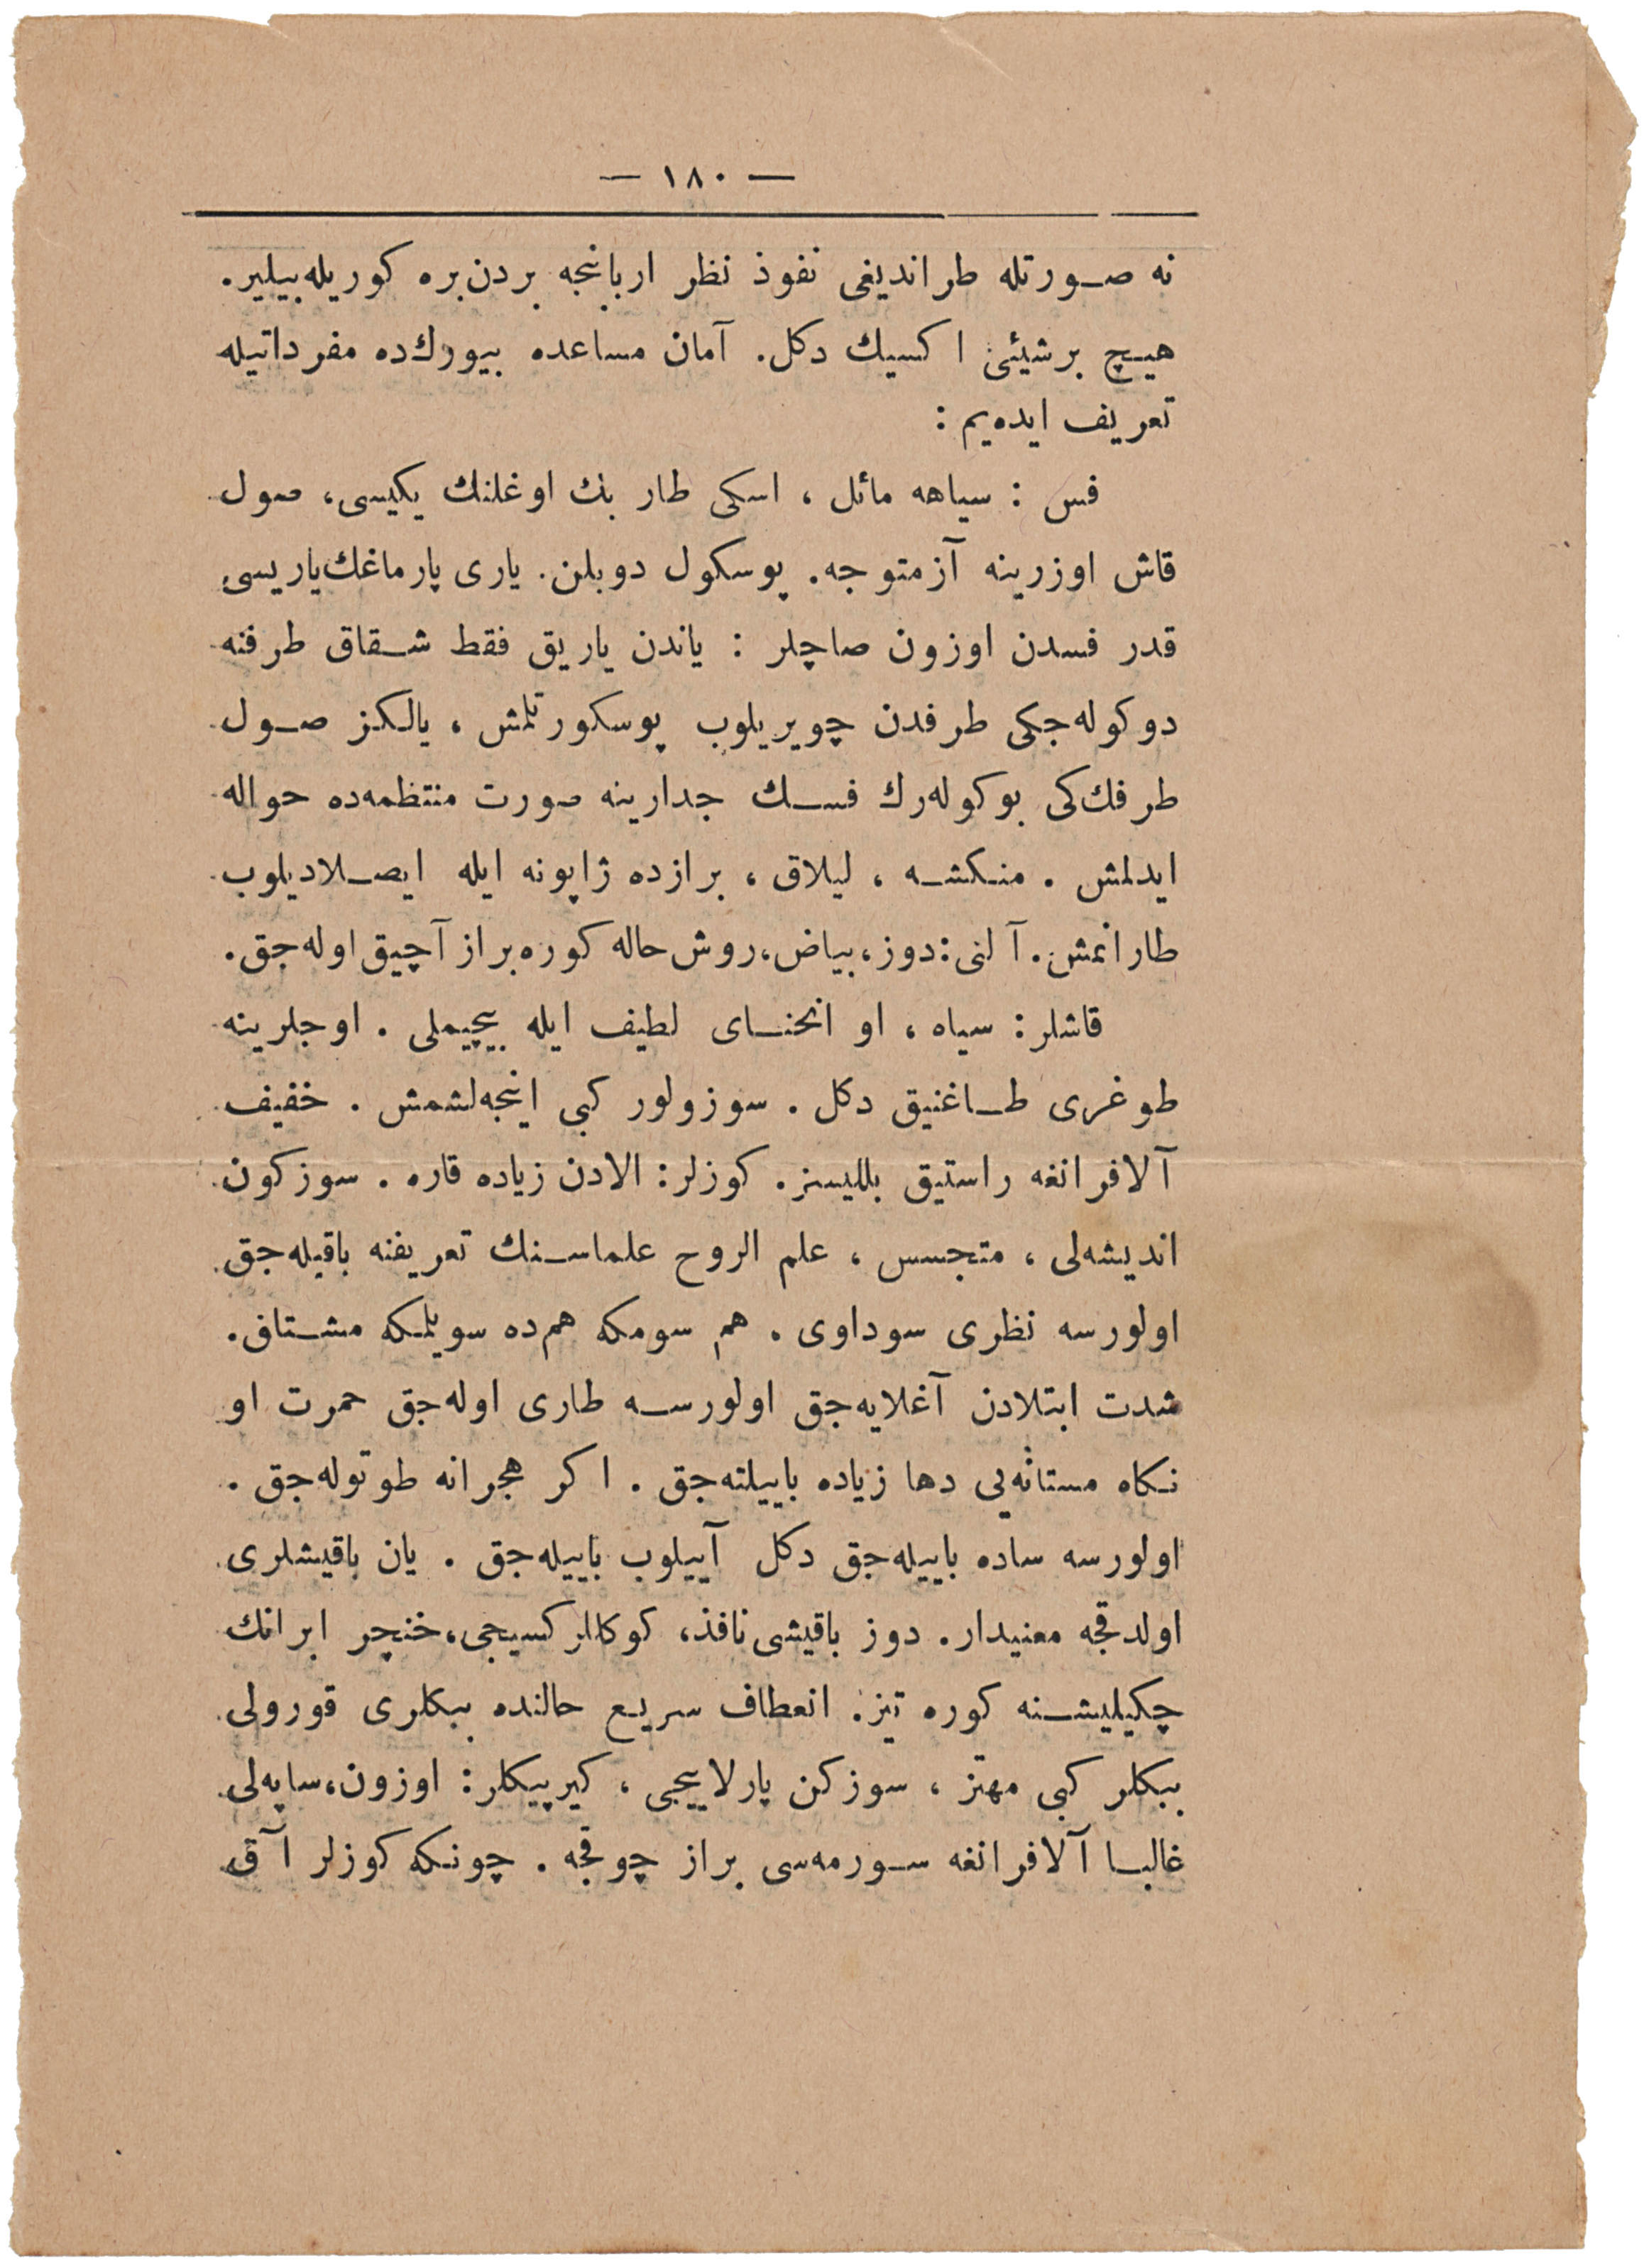 — ١٨٠ —
نه صورتله طراندیغی نفوذ نظر اربابنجه بردن بره کوریله بیلیر.
هیچ برشیئی اکسیك دکل. آمان مساعده بیورك ده مفرداتیله
تعریف ایده‌یم :
فس : سیاهه مائل ، اسکی طار بك اوغلنك یکیسی، صول
قاش اوزرینه آز متوجه. پوسکول دوبلن. یاری پارماغك یاریسی
قدر فسدن اوزون صاچلر : یاندن یاریق فقط شقاق طرفنه
دوکوله‌جکی طرفدن چویریلوب پوسکورتلمش ، یالکز صول
طرفك کی بوکوله‌رك فسك جدارینه صورت منتظمه‌ده حواله
ایدلمش . منکشه ، لیلاق ، برازده ژاپونه ایله ایصلادیلوب
طارانمش. آلنی: دوز، بیاض، روش حاله کوره براز آچیق اوله‌جق.
قاشلر: سیاه ، او انحنای لطیف ایله بیچیملی . اوجلرینه
طوغری طاغنیق دکل . سوزولور کبی اینجه‌لشمش . خفیف
آلافرانغه راستیق بللیسز. کوزلر: الادن زیاده قاره . سوزکون
اندیشه‌لی ، متجسس ، علم الروح علماسنك تعریفنه باقیله‌جق
اولورسه نظری سوداوی . هم سومکه هم‌ده سویلمکه مشتاق.
شدت ابتلادن آغلایه‌جق اولورسه طاری اوله‌جق حمرت او
نکاه مستانه‌یی دها زیاده باییلته‌جق . اکر هجرانه طوتوله‌جق .
اولورسه ساده باییله‌جق دکل آییلوب باییله‌جق . یان باقیشلری
اولدقجه معنیدار. دوز باقیشی نافذ، کوکللر کسیجی، خنچر ایرانك
چکیلیشنه کوره تیز. انعطاف سریع حالنده ببکلری قورولی
ببکلر کبی مهتز ، سوزکن پارلاییجی ، کیرپیکلر: اوزون، سایه‌لی
غالبا آلافرانغه سورمه‌سی براز چوقجه . چونکه کوزلر آق